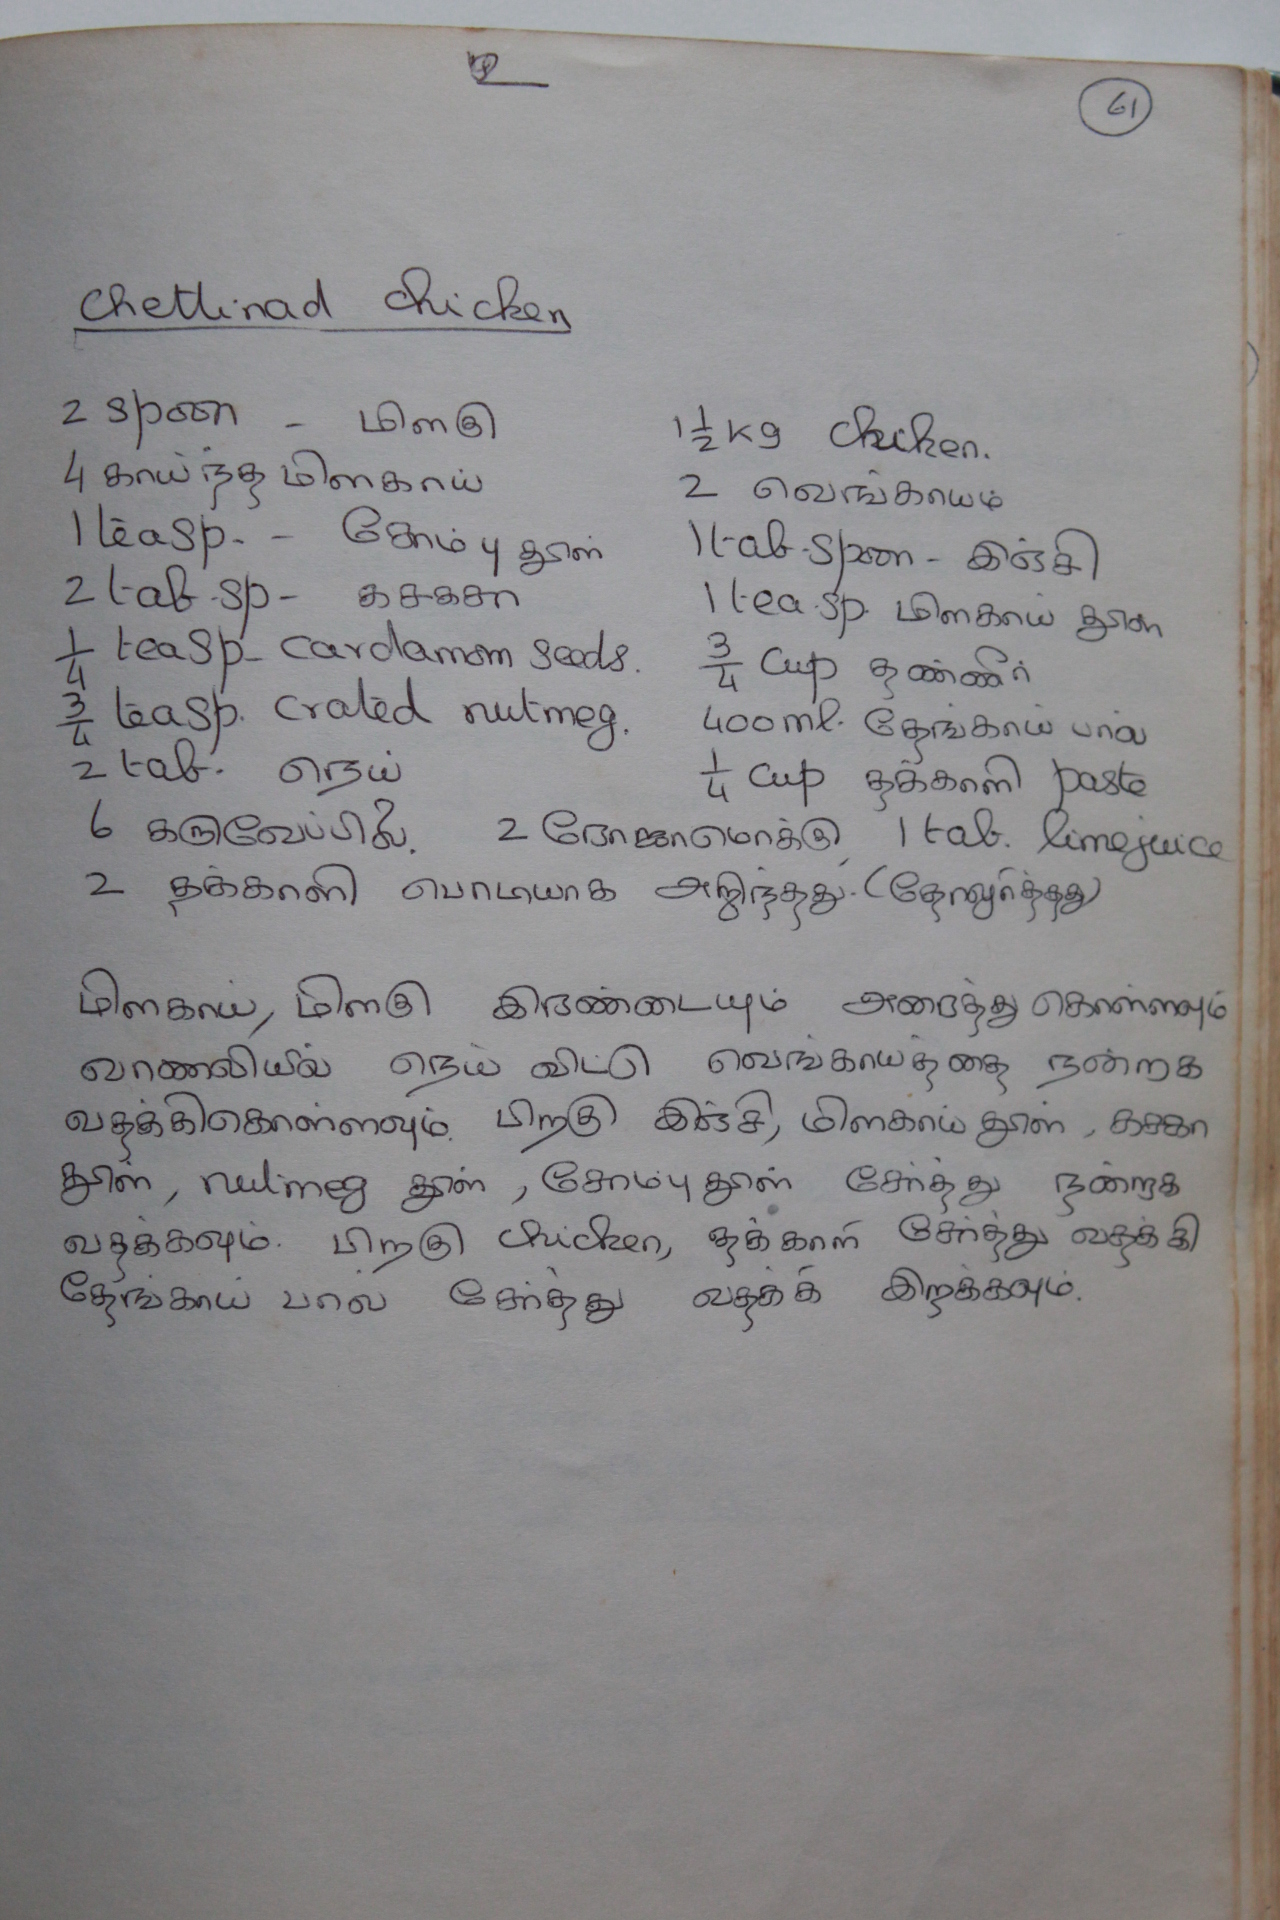 உ
61
Chettinad Chicken
2 spoon - மிளகு
4 காய்ந்த மிளகாய்
1 teasp. - சோம்பு தூள்
2 tab.sp - கசகசா
1/4 teasp- cardamom seeds.
3/4 teasp. crated nutmeg.
2 tab. நெய்
1 1/2 kg chicken.
2 வெங்காயம்
1 tab.spoon - இஞ்சி
1 tea.sp. மிளகாய் தூள்
3/4 cup தண்ணீர்
400ml. தேங்காய் பால்
1/4 cup தக்காளி paste
6 கருவேப்பிலை. 2 ரோஜாமொக்கு, 1 tab. limejuice
2 தக்காளி பொடியாக அறிந்தது. (தோலுரித்தது)
மிளகாய், மிளகு இரண்டையும் அரைத்து கொள்ளவும்
வாணலியில் நெய் விட்டு வெங்காயத்தை நன்றாக
வதக்கிகொள்ளவும். பிறகு இஞ்சி, மிளகாய் தூள், கசகசா
தூள், nutmeg தூள், சோம்பு தூள் சேர்த்து நன்றாக
வதக்கவும். பிறகு chicken, தக்காளி சேர்த்து வதக்கி
தேங்காய் பால் சேர்த்து வதக்கி இறக்கவும்.